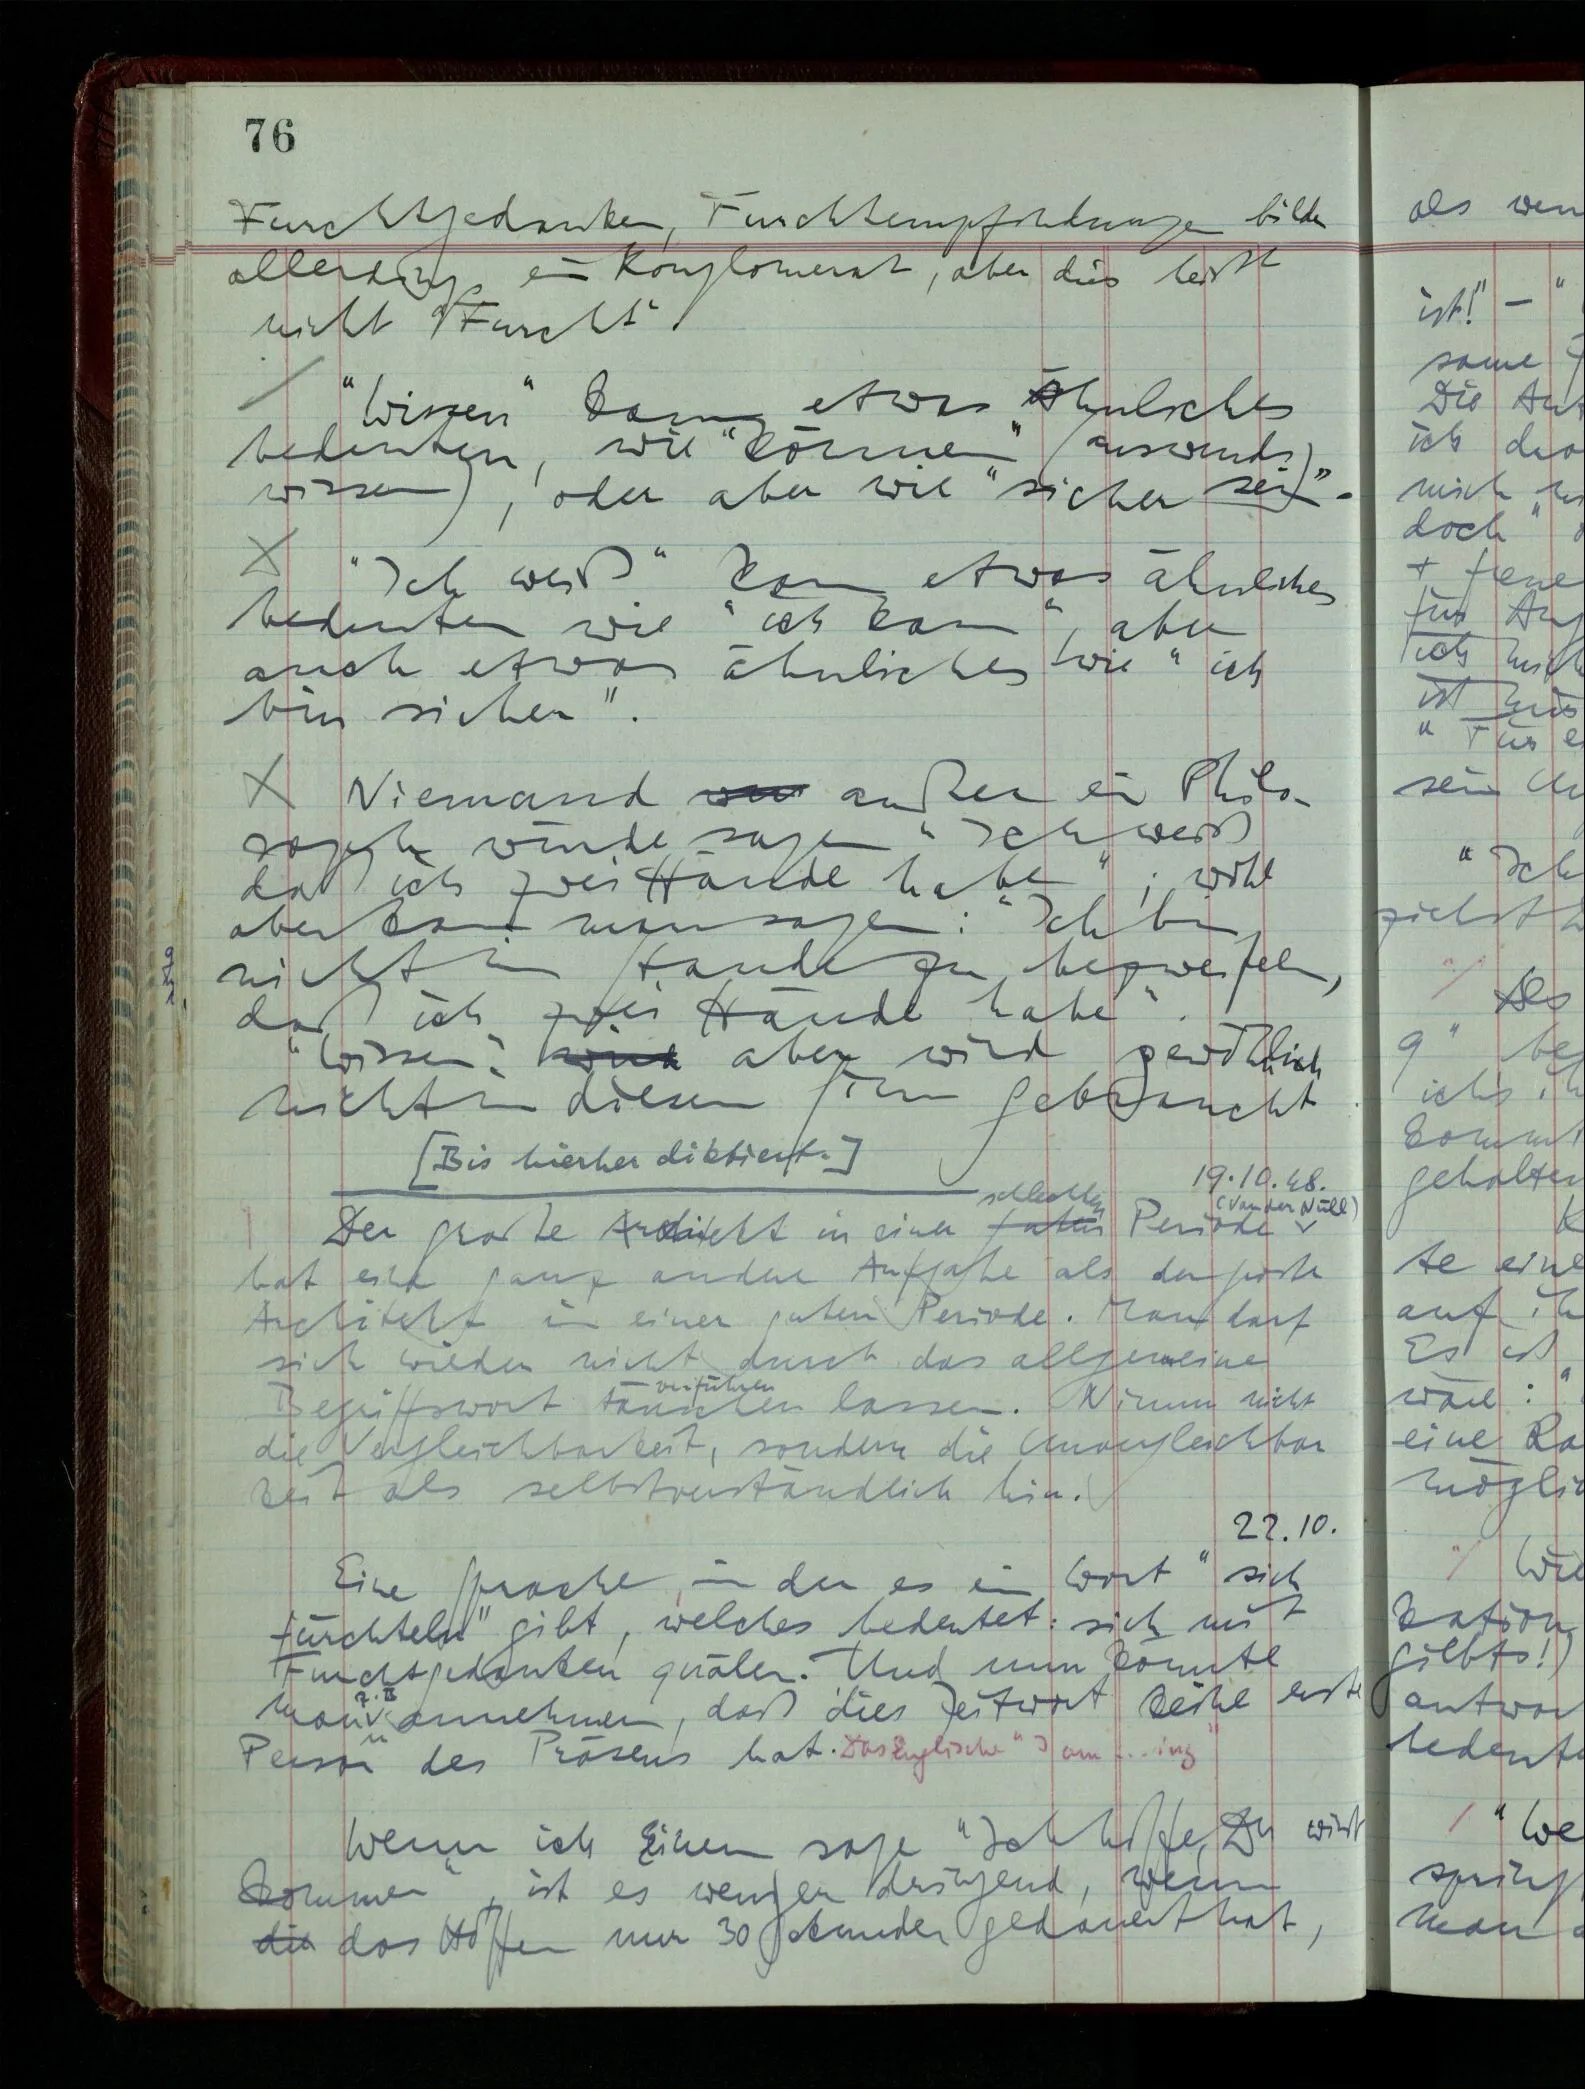 76
Furchtgedanken, Furchtempfindungen bilden
allerdings ein Konglomerat, aber dies heißt
nicht "Furcht".
"Wissen" kann etwas Ähnliches
bedeuten, wie "können" (auswendig
wissen), oder aber wie "sicher sein".
"Ich weiß" kann etwas ähnliches
bedeuten wie "ich kann", aber
auch etwas ähnliches wie "ich
bin sicher".
Niemand außer ein Philo-
soph würde sagen "Ich weiß
daß ich zwei Hände habe"; wohl
aber kann man sagen: "Ich bin
nicht im Stande zu bezweifeln,
daß ich zwei Hände habe".
"Wissen" wird aber wird gewöhnlich
nicht in diesem Sinn gebraucht.
[Bis hierher diktiert.]
19.10.48.
schlechten (Van der Nüll)
Der große Architekt in einer guten Periode
hat eine ganz andere Aufgabe als der große
Architekt in einer guten Periode. Man darf
sich wieder nicht durch das allgemeine
verführen
Begriffswort täuschen lassen. Nimm nicht
die Vergleichbarkeit, sondern die Unvergleichbar
keit als selbstverständlich hin.
22.10.
Eine Sprache, in der es ein Wort "sich
fürchteln" gibt, welches bedeutet: sich mit
Furchtgedanken quälen. Und nun könnte
z.B.
man annehmen, daß dies Zeitwort keine erste
Person des Präsens hat. Das Englische "I am ...ing"
Wenn ich Einem sage "Ich hoffe, Du wirst
kommen", ist es weniger dringend, wenn
die das Hoffen nur 30 Sekunden gedauert hat,
als wenn
ist!" – "
Die Ant
ich
mich
doch "
für
ich mich
ist
sein
"Ich
Des
ich's
kommt
gehalten
K
te eine
auf ih
Es ist
wäre: "
eine
möglich
Wie
gibts!)
antwor
bedeut
"We
man